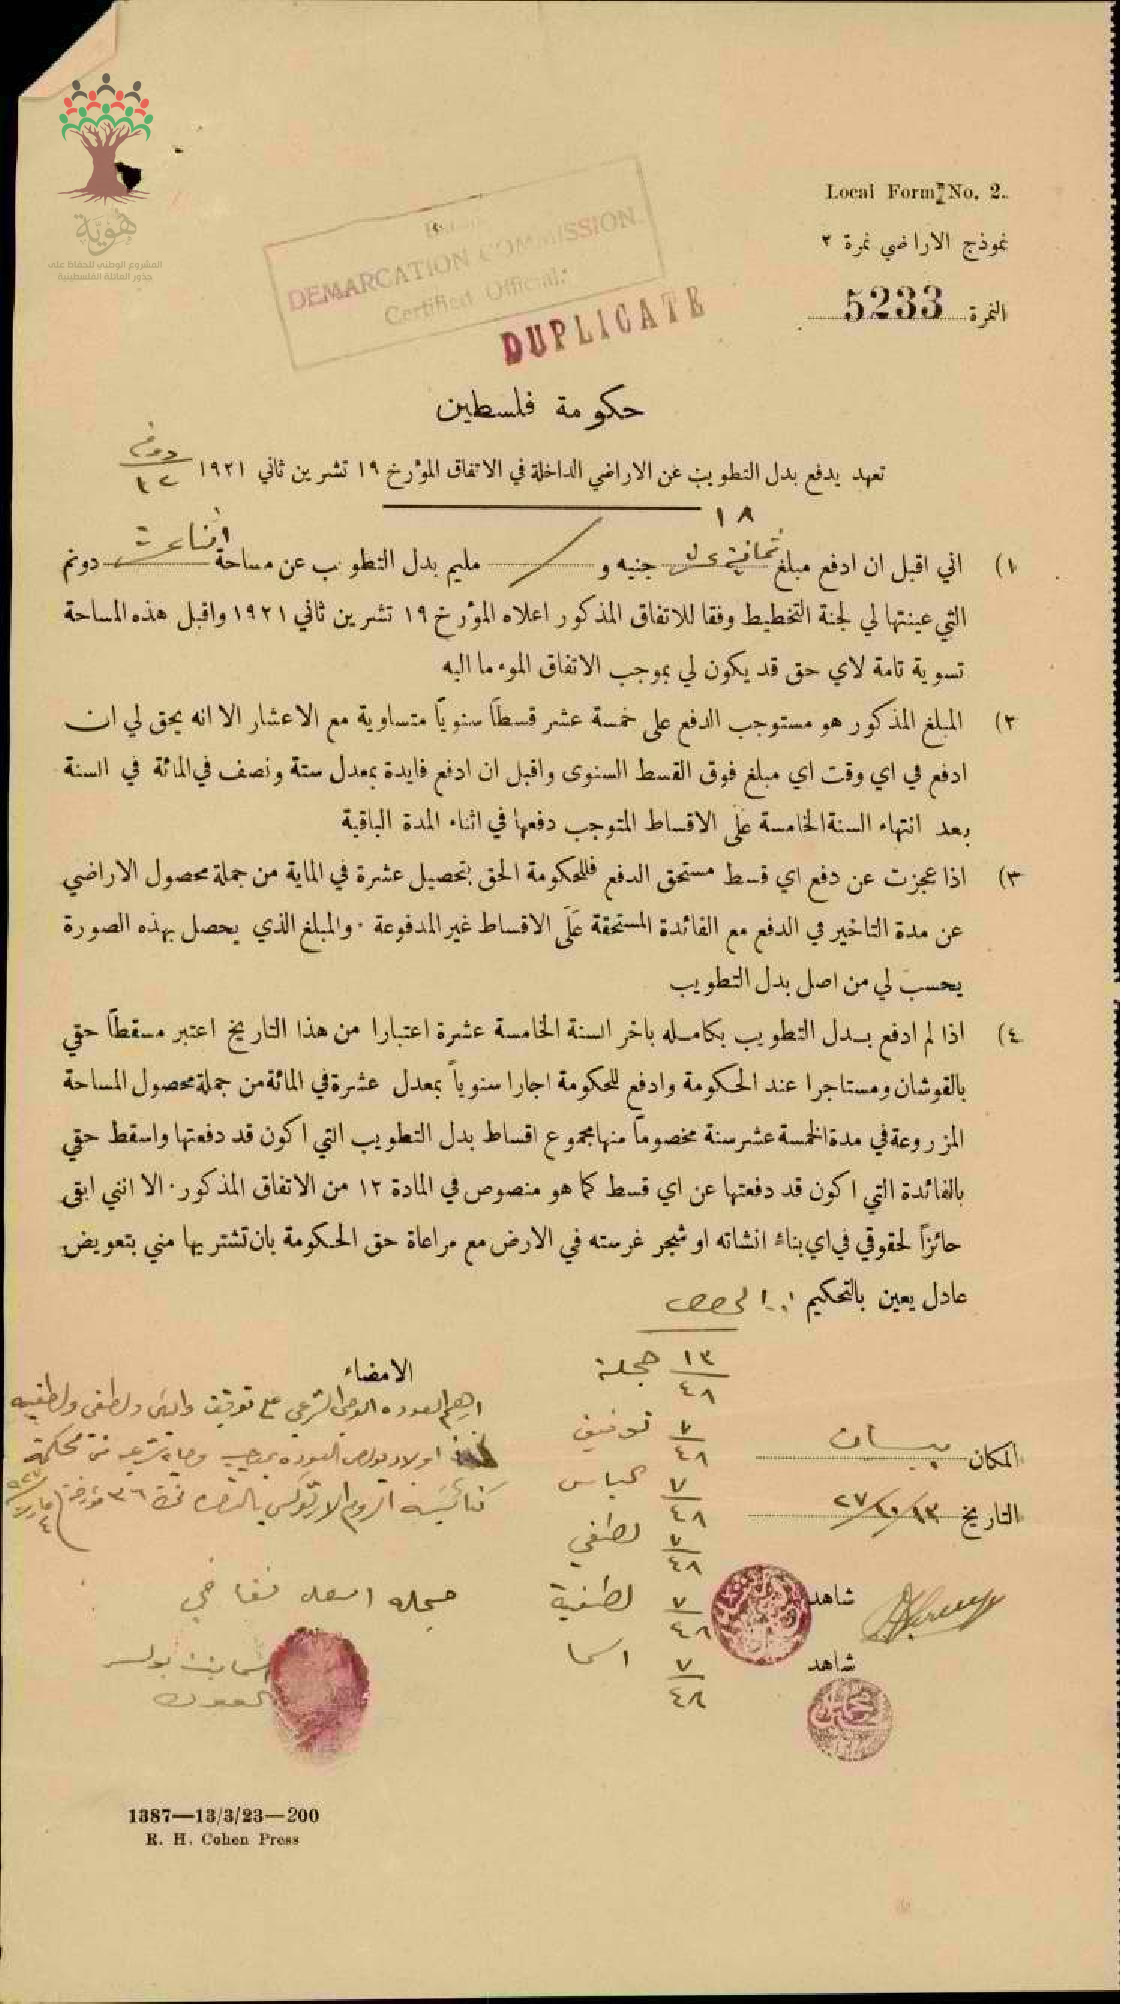 هُويّة
المشروع الوطني للحفاظ على
جذور العائلة الفلسطينية
Local Form No. 2.
نموذج الاراضي نمرة ٢
النمرة 5233
DEMARCATION COMMISSION
Certified Official:
DUPLICATE
حكومة فلسطين
تعهد يدفع بدل التطويب عن الاراضي الداخلة في الاتفاق المؤرخ ١٩ تشرين ثاني ١٩٢١
دونم
١٢
١٨
١) اني اقبل ان ادفع مبلغ ثمانية عشر جنيه و مليم بدل التطويب عن مساحة اثنا عشر دونم
التي عينتها لي لجنة التخطيط وفقا للاتفاق المذكور اعلاه المؤرخ ١٩ تشرين ثاني ١٩٢١ واقبل هذه المساحة
تسوية تامة لاي حق قد يكون لي بموجب الاتفاق الموء ما اليه
٢) المبلغ المذكور هو مستوجب الدفع على خمسة عشر قسطاً سنويّاً متساوية مع الاعشار الا انه يحق لي ان
ادفع في اي وقت اي مبلغ فوق القسط السنوى واقبل ان ادفع فايدة بمعدل ستة ونصف في المائة في السنة
بعد انتهاء السنة الخامسة عَلَى الاقساط المتوجب دفعها في اثناء المدة الباقية
٣) اذا عجزت عن دفع اي قسط مستحق الدفع فللحكومة الحق بتحصيل عشرة في الماية من جملة محصول الاراضي
عن مدة التاخير في الدفع مع الفائدة المستحقة عَلَى الاقساط غير المدفوعة ٠ والمبلغ الذي يحصل بهذه الصورة
يحسب لي من اصل بدل التطويب
٤) اذا لم ادفع بدل التطويب بكامله باخر السنة الخامسة عشرة اعتبارا من هذا التاريخ اعتبر مسقطاً حقي
بالقوشان ومستاجرا عند الحكومة وادفع للحكومة اجارا سنوياً بمعدل عشرة في المائة من جملة محصول المساحة
المزروعة في مدة الخمسة عشر سنة مخصوماً منها مجموع اقساط بدل التطويب التي اكون قد دفعتها واسقط حقي
بالفائدة التي اكون قد دفعتها عن اي قسط كما هو منصوص في المادة ١٢ من الاتفاق المذكور ٠ الا انني ابقى
حائزاً لحقوقي في اي بناء انشاته او شجر غرسته في الارض مع مراعاة حق الحكومة بان تشتريها مني بتعويض
عادل يعين بالتحكيم
الحصص
١٣/٤٨ حجلة
٧/٤٨ توفيق
٧/٤٨ الياس
٧/٤٨ لطفي
٧/٤٨ لطفية
٧/٤٨ اسما
الامضاء
ابراهيم العوده الوصي الشرعي على توفيق والياس ولطفي ولطفيه
اولاد بولص العوده بموجب وصاية شرعيه من محكمة
كنائسية الروم الارثوذكس بالناصره نمرة ٣٦ مؤرخة
حجله اسعد
اسما بنت بولس
العوده
المكان بيسان
التاريخ ١٣/١٠/٢٧
شاهد
شاهد
1387—13/3/23—200
R. H. Cohen Press